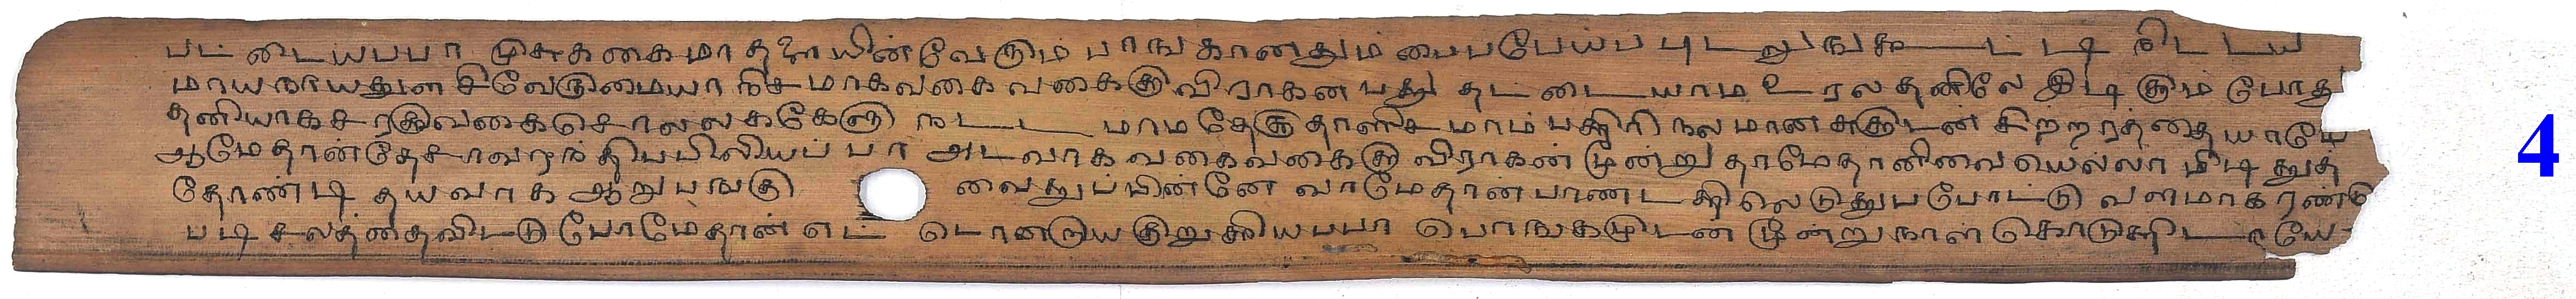 பட்டையபபா முசுககைமாதளாயின்வேரும் பாஙகானதும் பைபபேயப புடலுஙகூட்டி
மாயநாயதுள சிவேடுமையா நிசமாகவகை வகைககு விராகன பத்து தட்டையாம உரலதனிலே இடிககும் போத
தனியாகச சரகுவகை சொலலககேளு நடடமாம தேககுதாளிச மாம பததிரி நலமான சுககுடன் சிறறரத்தை யாமே
ஆமேதான்தேசாவரந திபபிலியப்பா அடவாக வகைவகைககு விராகன் மூன்று தாமேதானிவையெல்லா மிடிதுத
தோண்டி தயவாக ஆறுபஙகு வைதுப்பின்னே வாமேதான் பாண்டததிலெடுதுபபோட்டு வளமாக ரண்டு
படி சலத்தைவிடடு போமேதான் எட்டொனறாய குறுககியபபா பொஙகமுடன மூன்றுநாள் கொடுததிடாயே
4